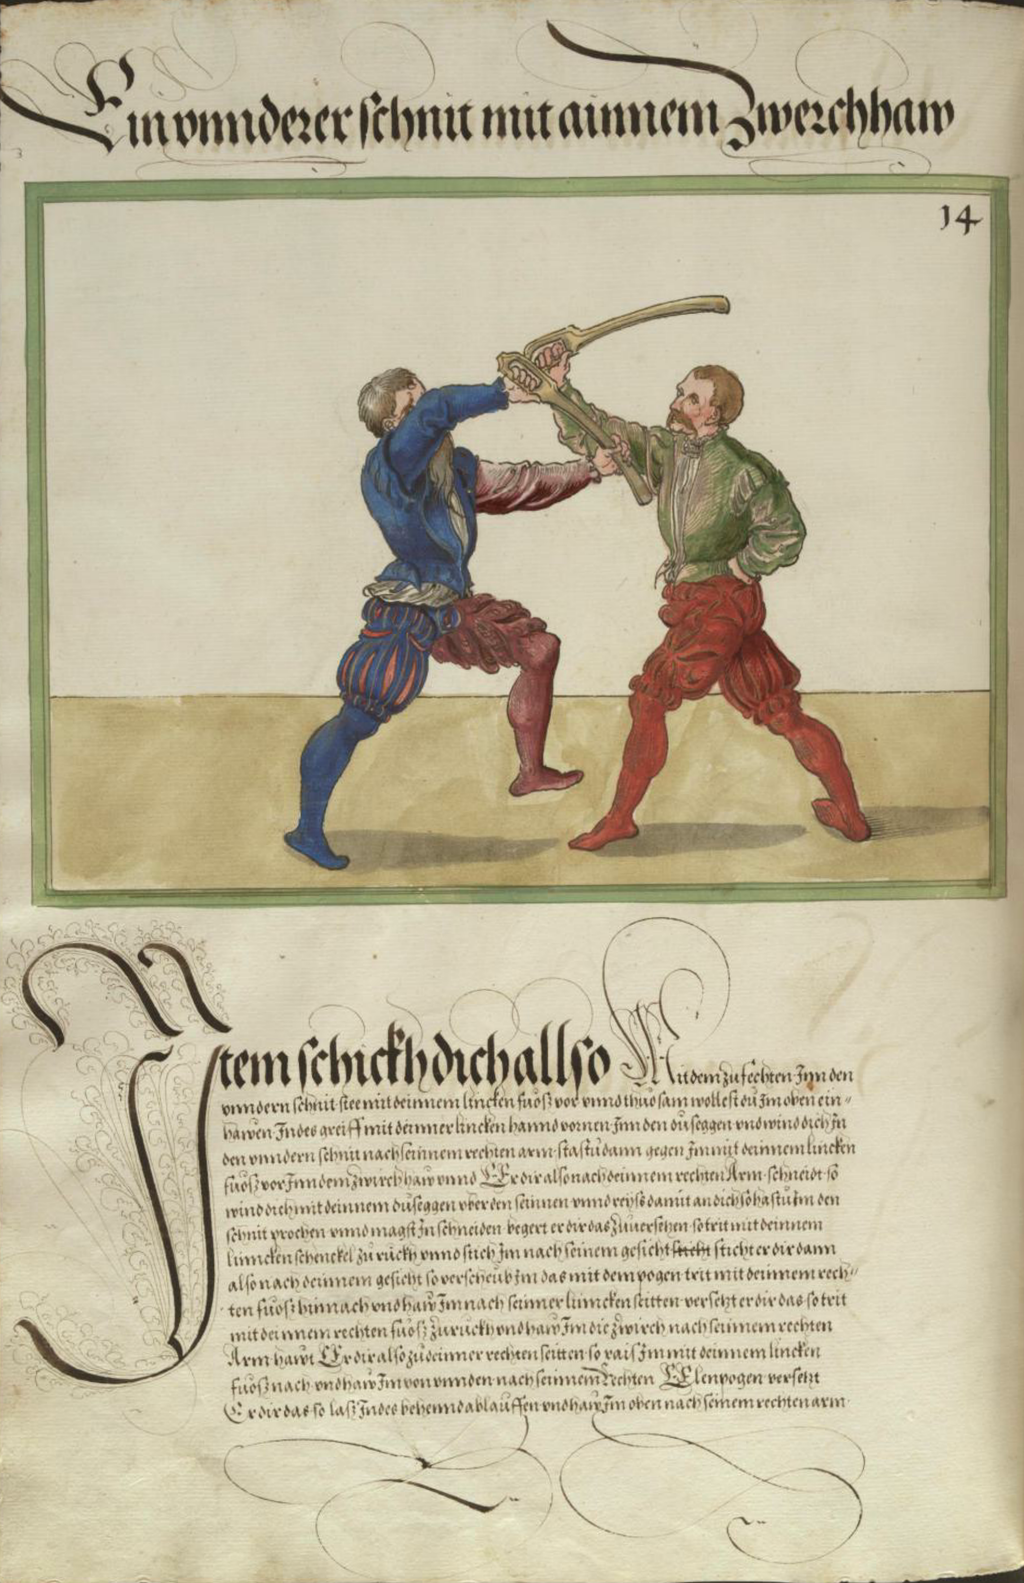 Ein vnnderer schnit mit ainnem Zwerchhaw
14
Item schickh dich allso Mit dem zufechten Inn den
vnndern schnit stee mit deinnem lincken fuosz vor vnnd thuo sam wollest du Im oben ein=
hawen Indes greiff mit deinner lincken hannd vornen Inn den duseggen vnd wind dich In
den vnndern schnit nach seinnem rechten arm. stastu dann gegen Im mit deinnem lincken
fuosz vor Inn dem zwirchhaw vnnd Er dir also nach deinnem rechten Arm schneidt so
wind dich mit deinnem duseggen vber den seinnen vnnd reysz damit an dich so hastu Im den
schnit prochen vnnd magst In schneiden begert er dir das Zuuersehen so trit mit deinnem
linncken schenckel zu ruckh vnnd stich Im nach seinem gesicht sticht sticht er dir dann
also nach deinnem gesicht so verscheub Im das mit dem pogen trit mit deinnem rech=
ten fuosz hinnach vnd haw Im nach seinner linncken seitten versetzt er dir das so trit
mit deinnem rechten fuosz Zuruckh vnd haw Im die zwirch nach seinnem rechten
Arm hawt Er dir also zu deinner rechten seitten so rais Im mit deinnem lincken
fuosz nach vnd haw Im von vnnden nach seinnem Rechten Elenpogen versetzt
Er dir das so lasz Indes behennd ablauffen vnd haw Im oben nach seinem rechten arm